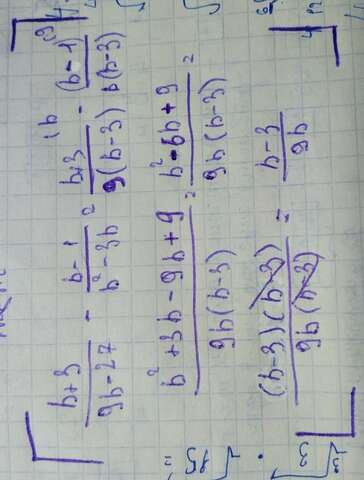 b+3/9b-27 - b-1/b²-3b = b+3/9(b-3) ^{1b} - (b-1)^{9}/b(b-3)
b²+3b-9b+9/9b(b-3) = b²-6b+9/9b(b-3) =
(b-3)(b-3)/9b(b-3) = b-3/9b